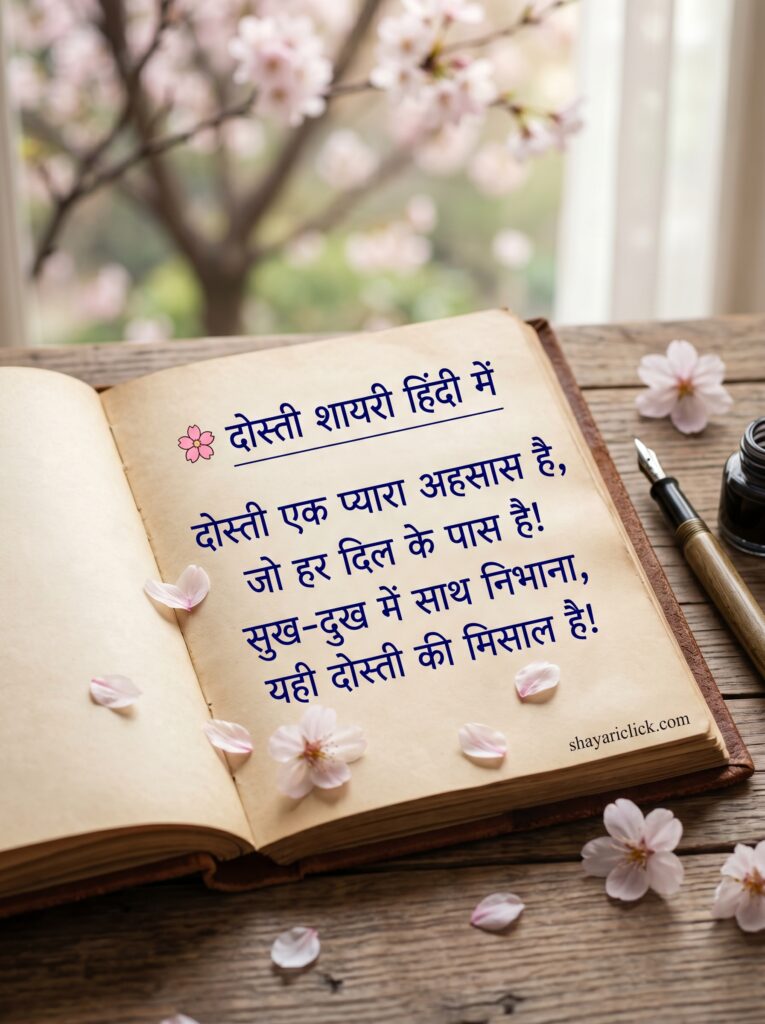 दोस्ती शायरी हिंदी में
दोस्ती एक प्यारा अहसास है,
जो हर दिल के पास है!
सुख-दुख में साथ निभाना,
यही दोस्ती की मिसाल है!
shayariclick.com